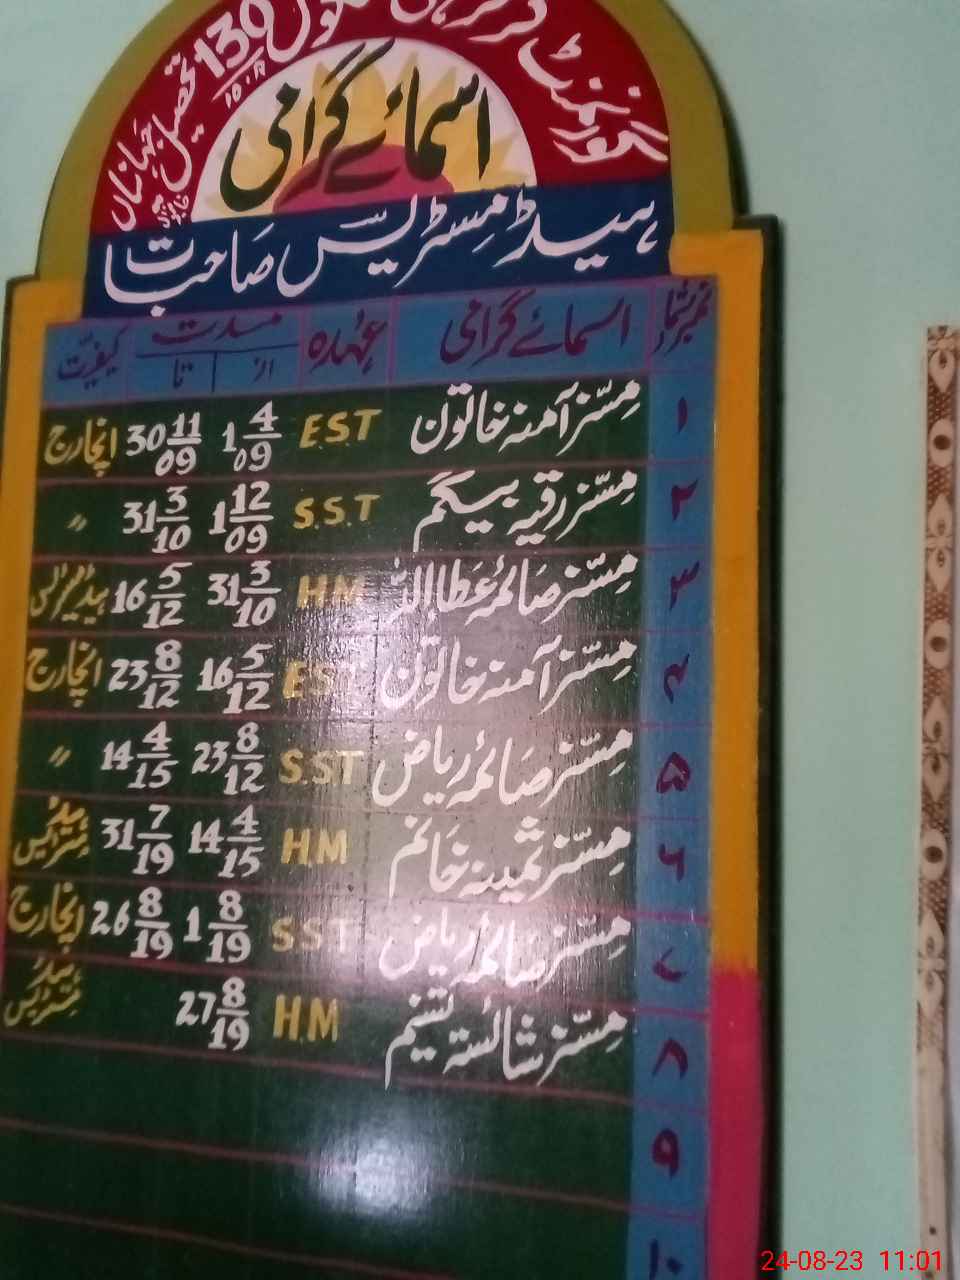 گورنمنٹ گرلز ہائی سکول 130 تحصیل جہانیاں
10.R
اسمائے گرامی
ہیڈ مسٹریس صاحبات
نمبر شمار اسمائے گرامی عہدہ مدت کیفیت
از تا
۱ مسّز آمنہ خاتون E.S.T 1 4/09 30 11/09 انچارج
۲ مسّز رقیہ بیگم S.S.T 1 12/09 31 3/10 〃
۳ مسّز صائمہ عطااللہ H M 31 3/10 16 5/12
۴ مسّز آمنہ خاتون EST 16 5/12 23 8/12 انچارج
۵ مسّز صائمہ ریاض S.ST 23 8/12 14 4/15 〃
۶ مسّز ثمینہ خانم H.M 14 4/15 31 7/19 ہیڈ مسٹریس
۷ مسّز صائمہ ریاض S S T 1 8/19 26 8/19 انچارج
۸ مسّز شائستہ تسنیم H.M 27 8/19 ہیڈ مسٹریس
۹
۱۰
24-08-23 11:01